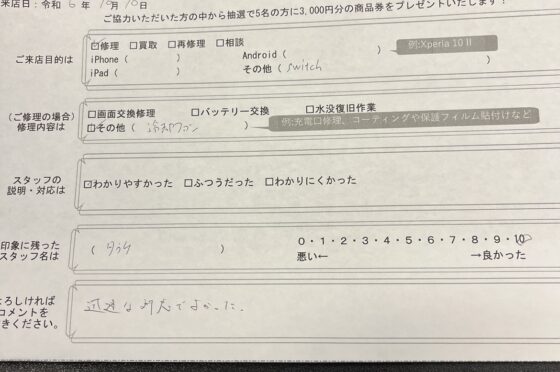 来店日：令和 6 年 10月 10日
ご協力いただいた方の中から抽選で5名の方に3,000円分の商品券をプレゼントいたします！
ご来店目的は
☑修理 □買取 □再修理 □相談
iPhone（ ） Android（ ） 例:Xperia 10 II
iPad（ ） その他（ switch ）
（ご修理の場合）
修理内容は
□画面交換修理 □バッテリー交換 □水没復旧作業
☑その他（ 冷却ファン ） 例:充電口修理、コーティングや保護フィルム貼付けなど
スタッフの
説明・対応は
☑わかりやすかった □ふつうだった □わかりにくかった
印象に残った
スタッフ名は
（ ）
0・1・2・3・4・5・6・7・8・9・10
悪い← →良かった
よろしければ
コメントを
きください。
迅速な対応でよかった。